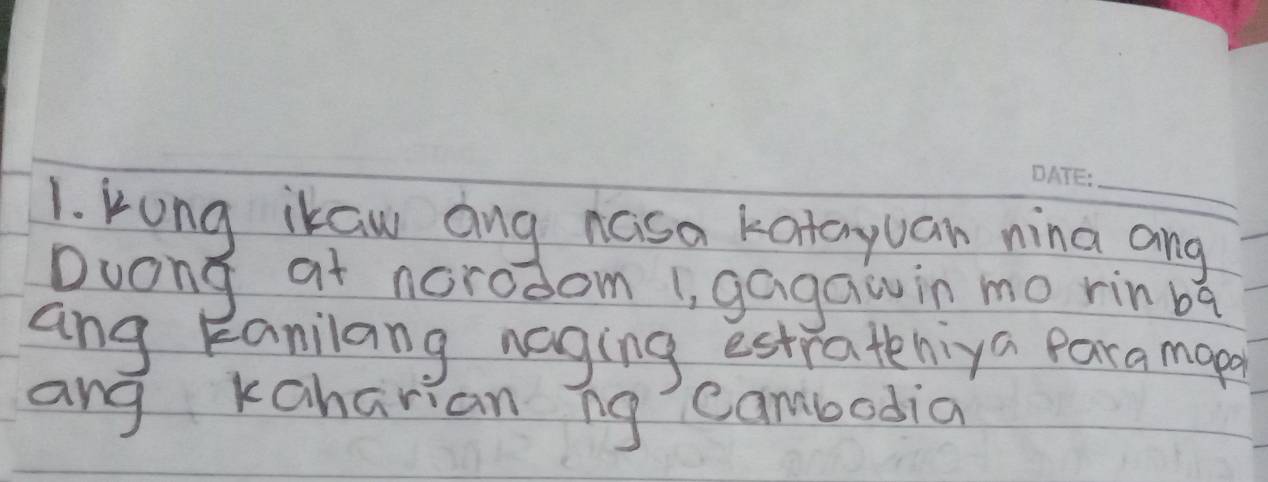 DATE:
1. Kung ikaw ang nasa katayuan nina ang
Duong at norodom 1, gagawin mo rin ba
ang kanilang naging estratehiya para mapa
ang kaharian ng Cambodia